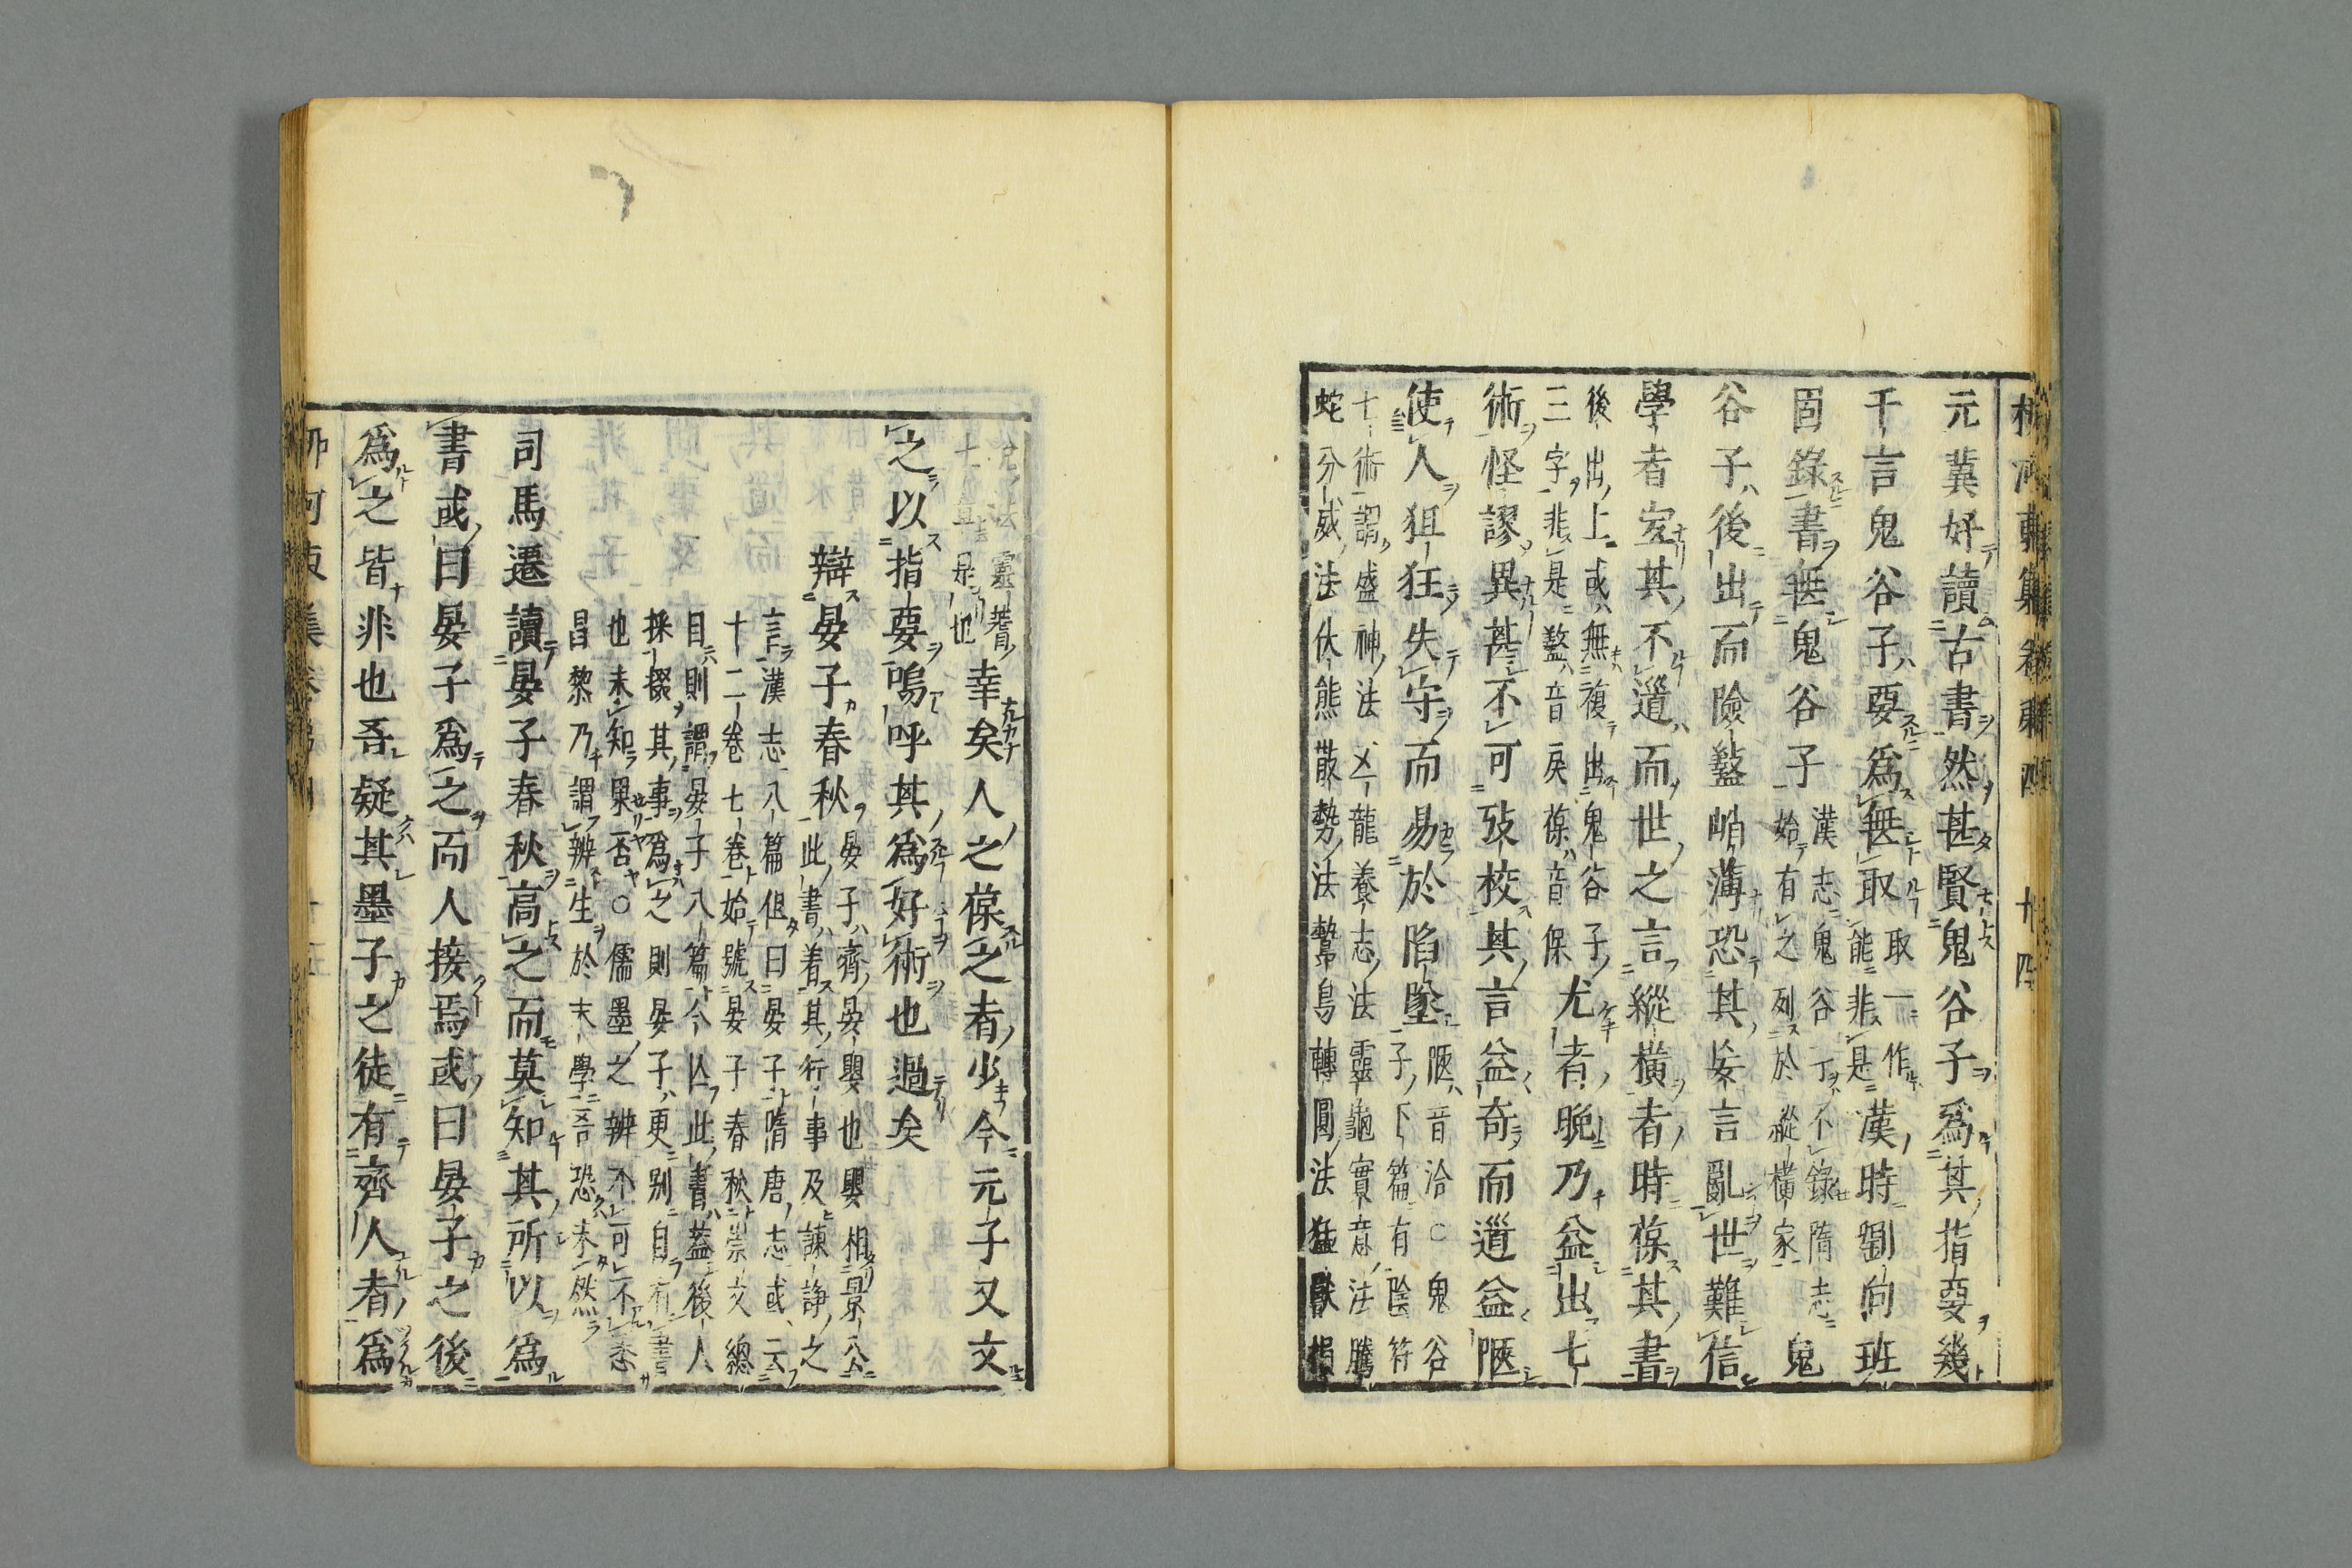 柳河東集卷第四　十四
元冀好讀古書然甚賢鬼谷子爲其指要幾
千言鬼谷子要爲無取
取一作
能非是
漢時劉向班
固錄書無鬼谷子
漢志鬼谷子不錄隋志
始有之列於縱橫家
鬼
谷子後出而險盭峭薄恐其妄言亂世難信
學者宜其不道而世之言縱橫者時葆其書
後出上或無複出鬼谷子
三字非是盭音戾葆音保
尤者晚乃益出七
術怪謬異甚不可攷校其言益奇而道益陿
使人狙狂失守而易於陷墜
陿音洽○鬼谷
子下篇有陰符
七術謂盛神法五龍養志法靈龜實意法騰
蛇分威法伏熊散勢法鷙鳥轉圓法猛獸損
兌法靈蓍
是也
幸矣人之葆之者少今元子又文
之以指要嗚呼其爲好術也過矣
辯晏子春秋
晏子齊晏嬰也嬰相景公
此書著其行事及諫諍之
言漢志八篇但曰晏子隋唐志或云
十二卷七卷始號晏子春秋崇文總
目則謂晏子八篇今亡此書蓋後人
採掇其事爲之則晏子更別自有書
也未知果否○儒墨之辨不可不悉
昌黎乃謂辨生於末學吾恐未然
司馬遷讀晏子春秋高之而莫知其所以爲
書或曰晏子爲之而人接焉或曰晏子之後
爲之皆非也吾疑其墨子之徒有齊人者爲
柳河東集卷第四　十五